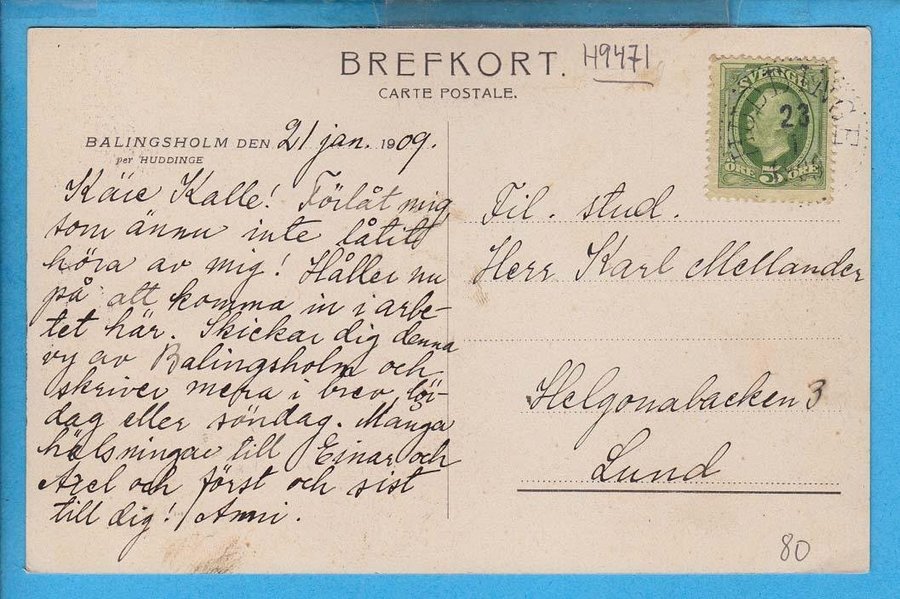 BREFKORT.
H9471
CARTE POSTALE.
SVERGE
HUDDINGE
23
ÖRE 5 ÖRE
BALINGSHOLM DEN 21 jan. 1909.
per HUDDINGE
Käre Kalle! Förlåt mig
som ännu inte låtit
höra av mig! Håller nu
på att komma in i arbe-
tet här. Skickar dig denna
vy av Balingsholm och
skriver mera i brev lör-
dag eller söndag. Många
hälsningar till Einar och
Axel och först och sist
till dig! Anni.
Fil. stud.
Herr Karl Mellander
Helgonabacken 3
Lund
80